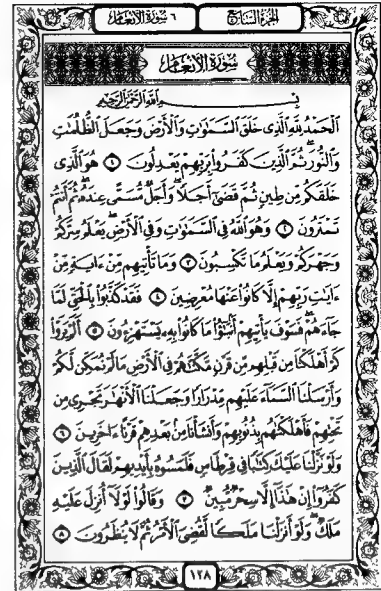 الجزء السابع
٦ سورة الأنعام
سورة الأنعام
بِسْمِ اللَّهِ الرَّحْمَٰنِ الرَّحِيمِ
الْحَمْدُ لِلَّهِ الَّذِي خَلَقَ السَّمَٰوَٰتِ وَالْأَرْضَ وَجَعَلَ الظُّلُمَٰتِ
وَالنُّورَ ۖ ثُمَّ الَّذِينَ كَفَرُوا بِرَبِّهِمْ يَعْدِلُونَ ١ هُوَ الَّذِي
خَلَقَكُم مِّن طِينٍ ثُمَّ قَضَىٰ أَجَلًا ۖ وَأَجَلٌ مُّسَمًّى عِندَهُ ۖ ثُمَّ أَنتُمْ
تَمْتَرُونَ ٢ وَهُوَ اللَّهُ فِي السَّمَٰوَٰتِ وَفِي الْأَرْضِ ۖ يَعْلَمُ سِرَّكُمْ
وَجَهْرَكُمْ وَيَعْلَمُ مَا تَكْسِبُونَ ٣ وَمَا تَأْتِيهِم مِّنْ ءَايَةٍ مِّنْ
ءَايَٰتِ رَبِّهِمْ إِلَّا كَانُوا عَنْهَا مُعْرِضِينَ ٤ فَقَدْ كَذَّبُوا بِالْحَقِّ لَمَّا
جَاءَهُمْ ۖ فَسَوْفَ يَأْتِيهِمْ أَنبَٰٓؤُا مَا كَانُوا بِهِ يَسْتَهْزِءُونَ ٥ أَلَمْ يَرَوْا
كَمْ أَهْلَكْنَا مِن قَبْلِهِم مِّن قَرْنٍ مَّكَّنَّٰهُمْ فِي الْأَرْضِ مَا لَمْ نُمَكِّن لَّكُمْ
وَأَرْسَلْنَا السَّمَاءَ عَلَيْهِم مِّدْرَارًا وَجَعَلْنَا الْأَنْهَٰرَ تَجْرِي مِن
تَحْتِهِمْ فَأَهْلَكْنَٰهُم بِذُنُوبِهِمْ وَأَنشَأْنَا مِن بَعْدِهِمْ قَرْنًا ءَاخَرِينَ ٦
وَلَوْ نَزَّلْنَا عَلَيْكَ كِتَٰبًا فِي قِرْطَاسٍ فَلَمَسُوهُ بِأَيْدِيهِمْ لَقَالَ الَّذِينَ
كَفَرُوا إِنْ هَٰذَا إِلَّا سِحْرٌ مُّبِينٌ ٧ وَقَالُوا لَوْلَا أُنزِلَ عَلَيْهِ
مَلَكٌ ۖ وَلَوْ أَنزَلْنَا مَلَكًا لَّقُضِيَ الْأَمْرُ ثُمَّ لَا يُنظَرُونَ ٨
١٢٨